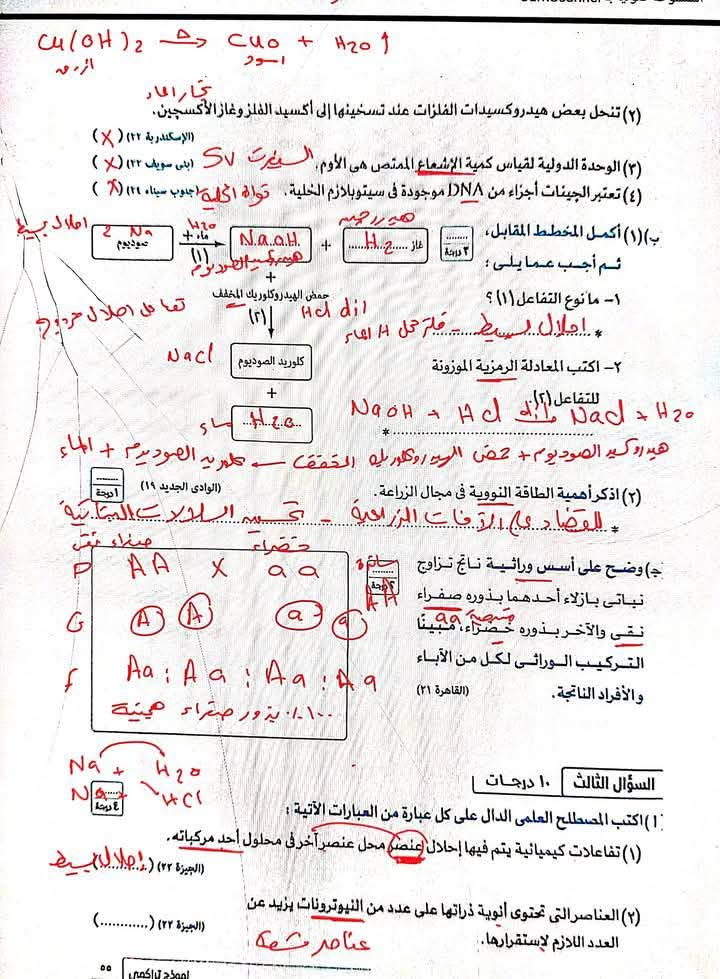 Cu(OH)2 Δ→ CuO + H2O ↑
ازرق اسود
بخار الماء
(٢) تنحل بعض هيدروكسيدات الفلزات عند تسخينها إلى أكسيد الفلز وغاز الأكسجين.
(الإسكندرية ٢٢) (X)
(٣) الوحدة الدولية لقياس كمية الإشعاع الممتص هى الأوم. السيفرت SV (بنى سويف ٢٢) (X)
(٤) تعتبر الچينات أجزاء من DNA موجودة فى سيتوبلازم الخلية. نواة الخلية (جنوب سيناء ٢٤) (X)
ب) (١) أكمل المخطط المقابل،
ثم أجب عما يلى :
٣ درجة
هيدروجين
غاز ..... H2 .....
+
Na.OH.
هيدروكسيد الصوديوم
H2O
+ ماء
(١)
2 Na
صوديوم
احلال بسيط
+
حمض الهيدروكلوريك المخفف
HCl dil
(٢)
تفاعل احلال مزدوج
NaCl
كلوريد الصوديوم
+
H2O
ماء
١- ما نوع التفاعل (١) ؟
* احلال بسيط - فلز محل H الماء
٢- اكتب المعادلة الرمزية الموزونة
للتفاعل (٢)
NaOH + HCl dil→ NaCl + H2O
*
هيدروكسيد الصوديوم + حمض الهيدروكلوريك المخفف ← كلوريد الصوديوم + الماء
(٢) اذكر أهمية الطاقة النووية فى مجال الزراعة. (الوادى الجديد ١٩)
١ درجة
* القضاء على الآفات الزراعية - تحسين السلالات النباتية
ج) وضح على أسس وراثية ناتج تزاوج
نباتى بازلاء أحدهما بذوره صفراء
AA
نقى والآخر بذوره خضراء، مبينًا
متنحية aa
التركيب الوراثى لكل من الآباء
والأفراد الناتجة. (القاهرة ٢١)
٢ درجة
سائدة
صفراء نقى خضراء
P AA X aa
G A A a a
F Aa : Aa : Aa : Aa
١٠٠٪ بذور صفراء هجينة
Na + H2O
Na + HCl
السؤال الثالث ١٠ درجات
٤ درجة
أ) اكتب المصطلح العلمى الدال على كل عبارة من العبارات الآتية :
(١) تفاعلات كيميائية يتم فيها إحلال عنصر محل عنصر آخر فى محلول أحد مركباته.
(الجيزة ٢٢) (إحلال بسيط)
(٢) العناصر التى تحتوى أنوية ذراتها على عدد من النيوترونات يزيد عن
العدد اللازم لإستقرارها. (الجيزة ٢٢) (............)
عناصر مشعة
نموذج تراكمى ٥٥